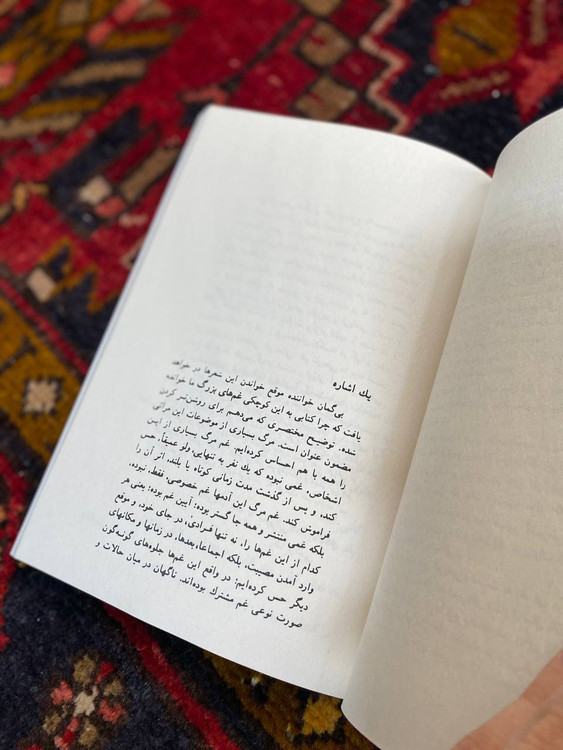 یك اشاره
بی‌گمان خواننده موقع خواندن این شعرها در خواهد
یافت که چرا کتابی به این کوچکی غم‌های بزرگ ما خوانده
شده. توضیح مختصری که می‌دهم برای روشن‌تر کردن
مضمون عنوان است. مرگ بسیاری از موضوعات این مراثی
را همه با هم احساس کرده‌ایم. غم مرگ بسیاری از این
اشخاص، غمی نبوده که یك نفر به تنهایی، ولو عمیقاً، حس
کند، و پس از گذشت مدت زمانی کوتاه یا بلند، اثر آن را
فراموش کند. غم مرگ این آدمها غم خصوصی، فقط، نبوده،
بلکه غمی منتشر و همه جا گستر بوده: آیین غم بوده؛ یعنی هر
کدام از این غم‌ها را، نه تنها فرادی، در جای خود، و موقع
وارد آمدن مصیبت، بلکه اجماعا، بعدها، در زمانها و مکانهای
دیگر حس کرده‌ایم: در واقع این غم‌ها جلوه‌های گونه‌گون
صورت نوعی غم مشترك بوده‌اند. ناگهان در میان حالات و